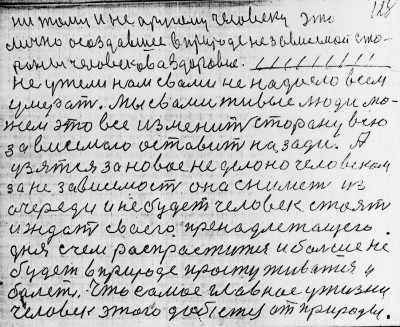 128
ни тому и не другому человеку это
лично создавшее в природе независемой сто-
роны человекова здоровие.
не ужели нам свами не надоело всем
умерат. Мы свами живые люди мо-
жем это все изменит сторону всю
зависемаю оставит на зади. А
узятся за новое не дело но человеком
за не зависемост она снимет из
очереди и небудет человек стоят
и ждат своего пренадлежащего
дня счем распраститися и болше не
будет в природе просту живатия и
болет. Что самое главное у жизни
человек этого добется от природы.